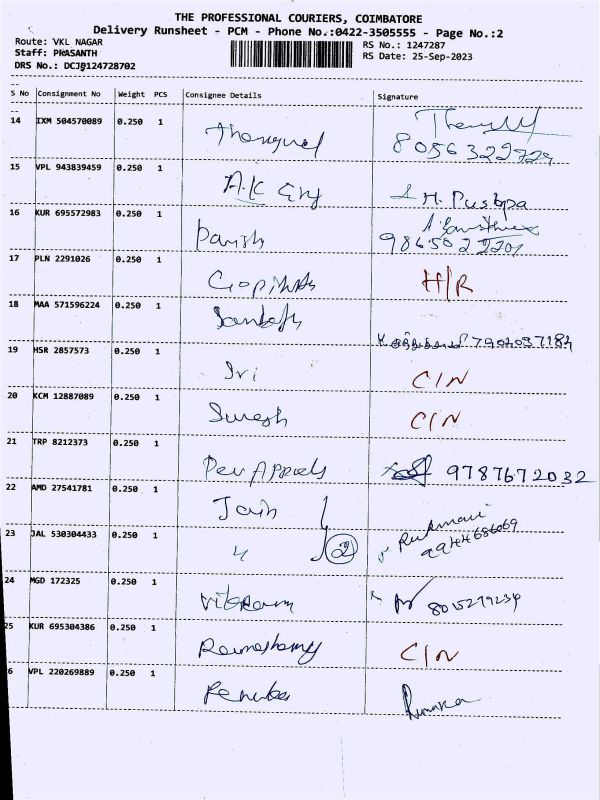 THE PROFESSIONAL COURIERS, COIMBATORE
Delivery Runsheet - PCM - Phone No.:0422-3505555 - Page No.:2
Route: VKL NAGAR
Staff: PRASANTH
DRS No.: DCJ0124728702
RS No.: 1247287
RS Date: 25-Sep-2023
S No Consignment No Weight PCS Consignee Details Signature
14 IXM 504570089 0.250 1
8056322729
15 VPL 943839459 0.250 1 A.K Eng H. Puspa
16 KUR 695572983 0.250 1 Danish
9865022201
17 PLN 2291026 0.250 1 Gopinath H/R
18 MAA 571596224 0.250 1 Santosh
7904037184
19 HSR 2857573 0.250 1 Sri C/N
20 KCM 12887089 0.250 1 Suresh C/N
21 TRP 8212373 0.250 1 Dev Apparels 9787672032
22 AMD 27541781 0.250 1 Jain
23 JAL 530304433 0.250 1 " 2 Rukmani
9944686069
24 MGD 172325 0.250 1 Vikram 8015279234
25 KUR 695304386 0.250 1 Ramashamy C/N
6 VPL 220269889 0.250 1 Renuka Renuka